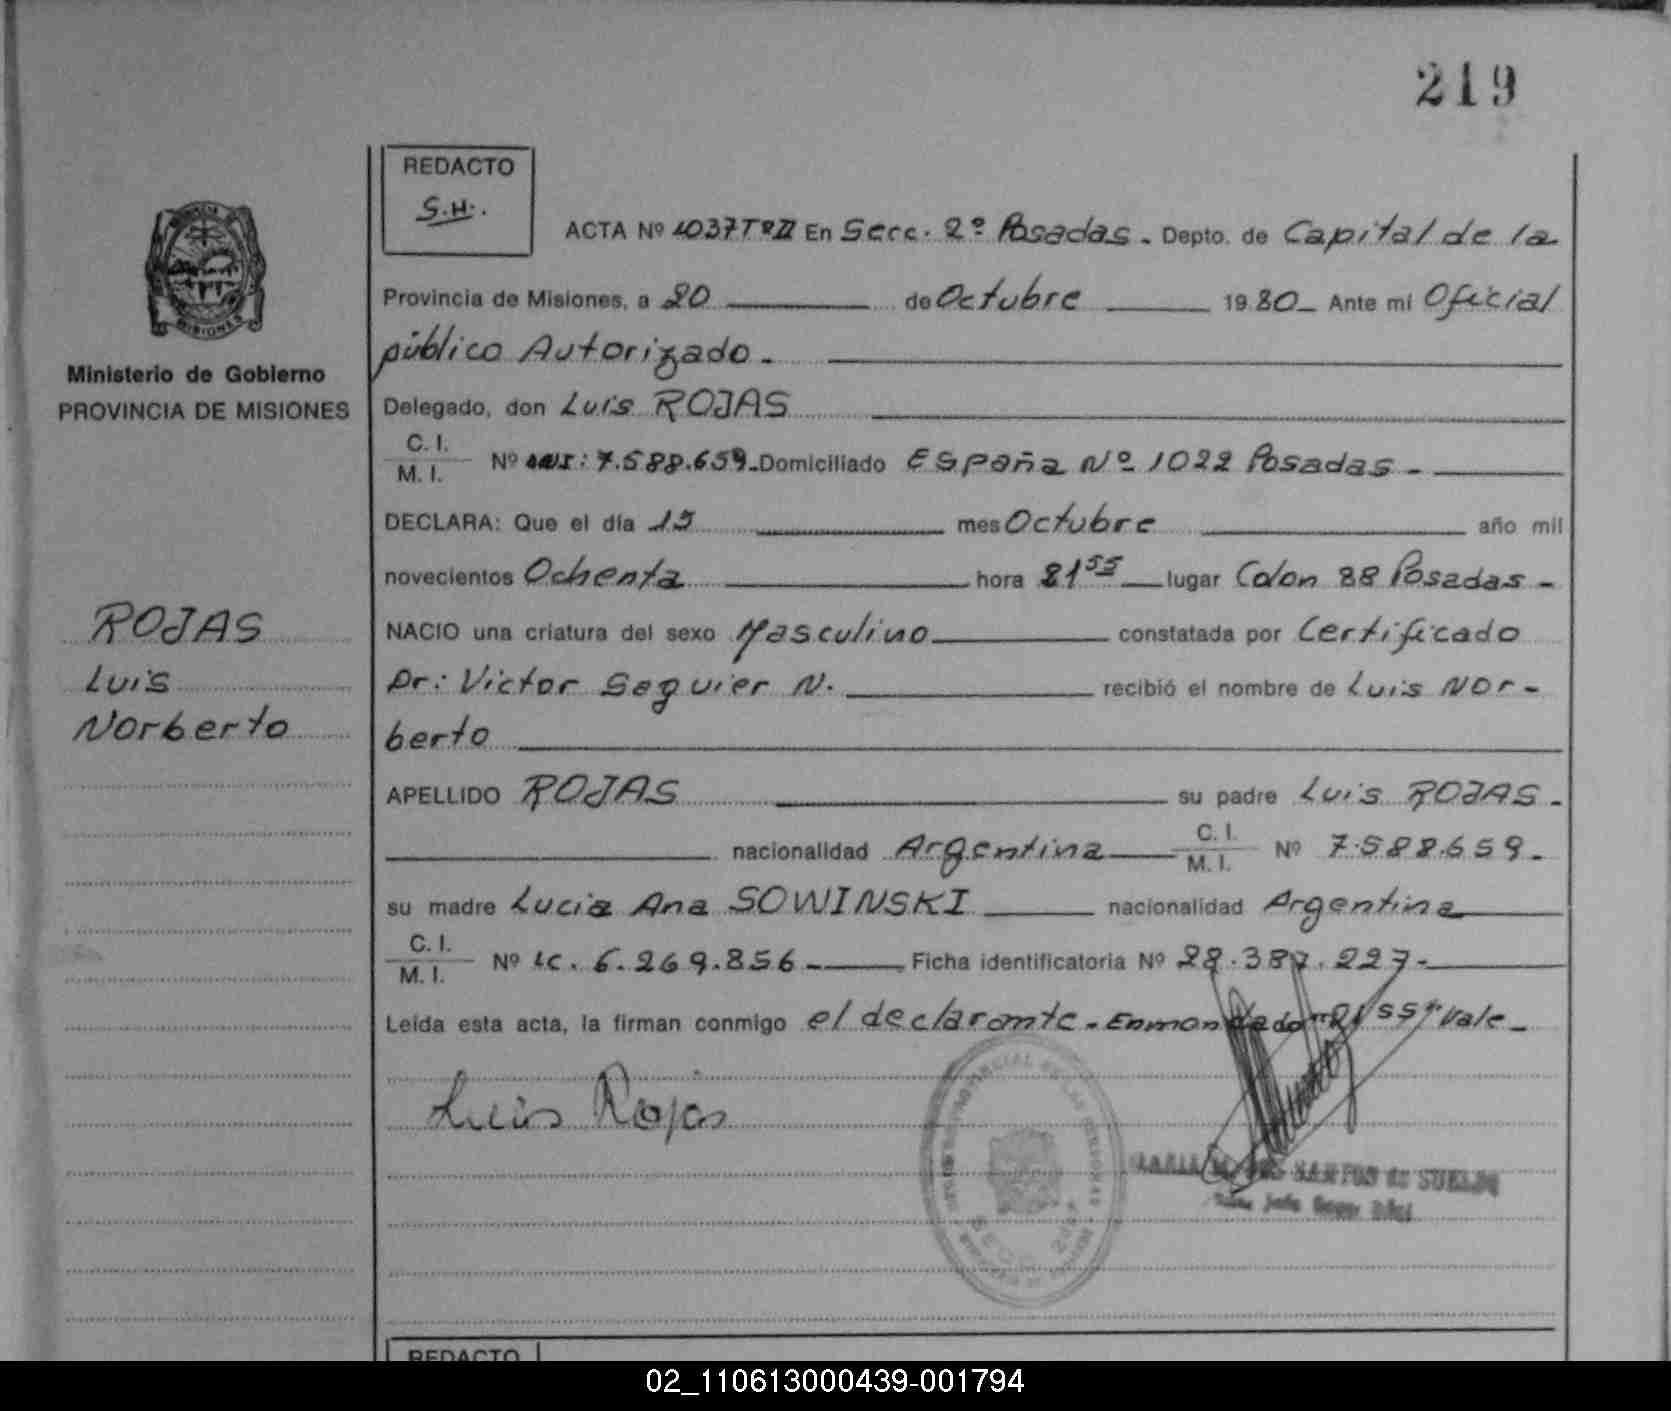 219
REDACTO
S.H.
ACTA Nº 1037TºII En Secc. 2º Posadas. Depto. de Capital de la
Provincia de Misiones, a 20 de Octubre 1980 Ante mi Oficial
público Autorizado.
Ministerio de Gobierno
PROVINCIA DE MISIONES
Delegado, don Luis ROJAS
C. I.
M. I. Nº 7.588.659. Domiciliado España Nº 1022 Posadas.
DECLARA: Que el día 15 mes Octubre año mil
novecientos Ochenta hora 21 55 lugar Colon 88 Posadas
ROJAS
Luis
Norberto
NACIO una criatura del sexo Masculino constatada por Certificado
Dr: Victor Seguier N. recibió el nombre de Luis Nor-
berto
APELLIDO ROJAS su padre Luis ROJAS.
nacionalidad Argentina C. I. M. I. Nº 7.588.659.
su madre Lucia Ana SOWINSKI nacionalidad Argentina
C. I.
M. I. Nº LC. 6.269.856 Ficha identificatoria Nº 28.387.227.
Leída esta acta, la firman conmigo el declarante. Enmendado "21 55" Vale
Luis Rojas
REDACTO
02_110613000439-001794